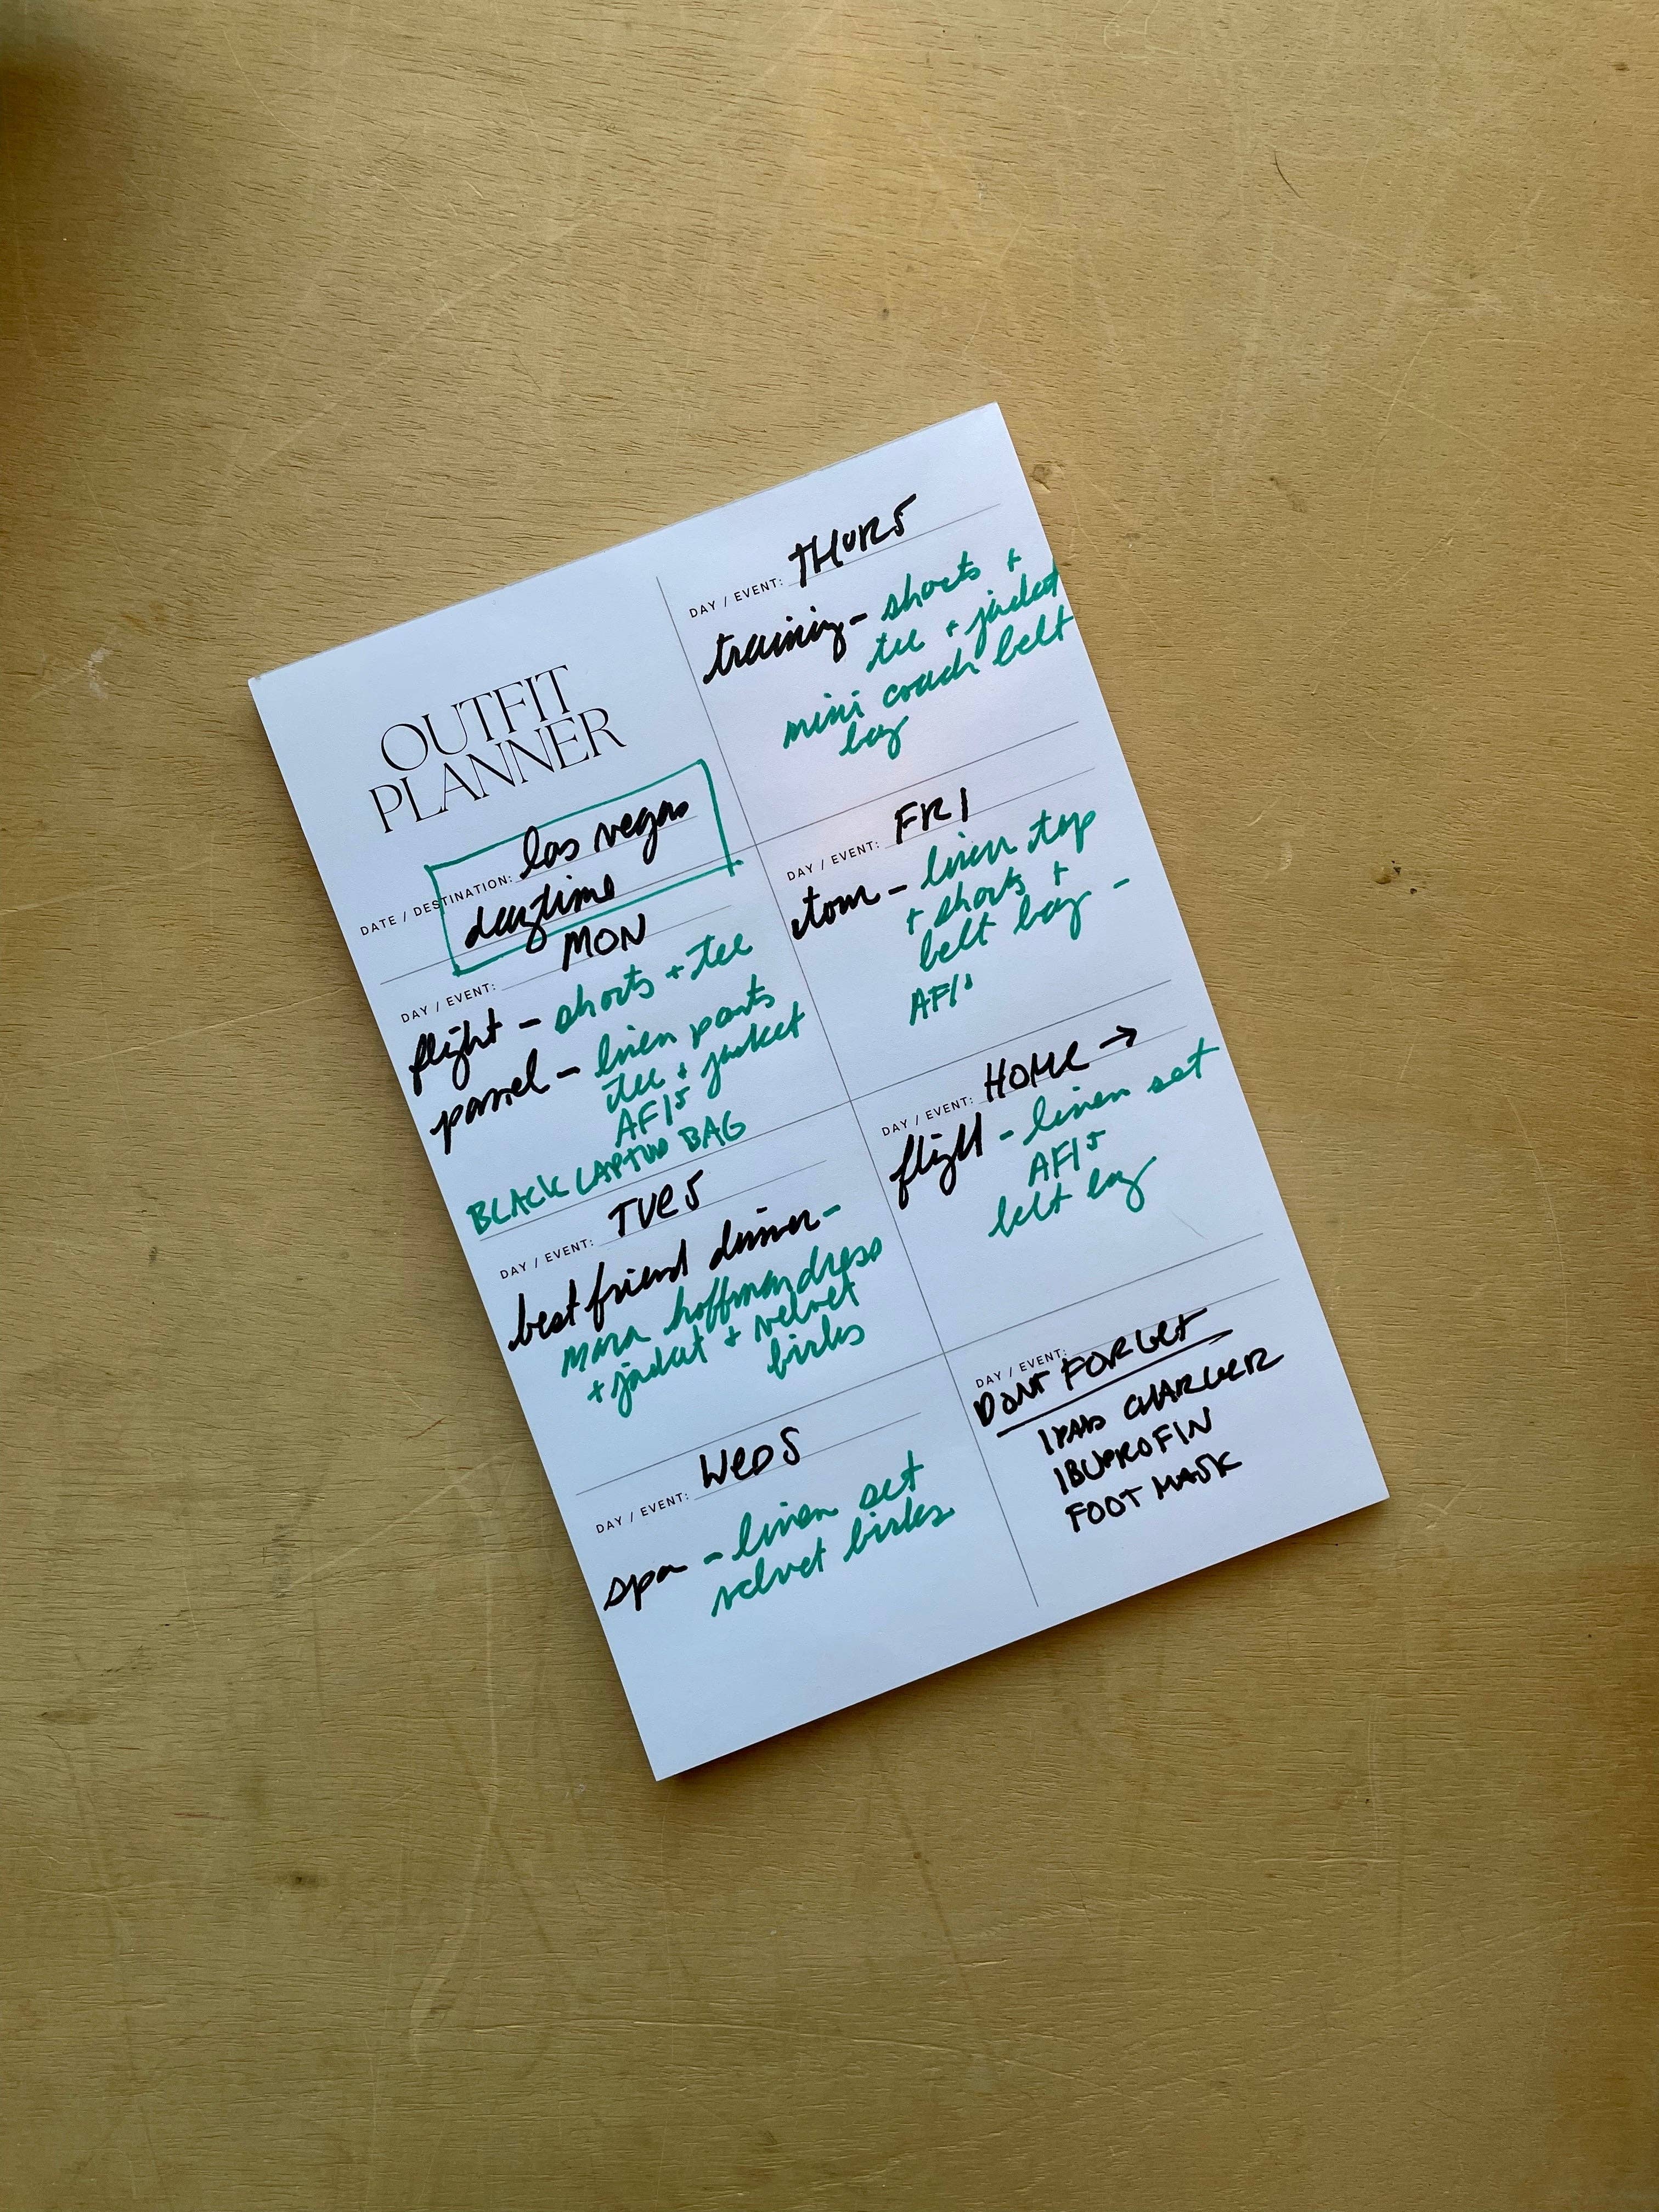 OUTFIT
PLANNER
DATE / DESTINATION: las vegas
daytime
DAY / EVENT: MON
flight - shorts + tee
pannel - linen pants
tee + jacket
AF1s
BLACK LAPTOP BAG
DAY / EVENT: TUES
best friend dinner -
mara hoffman dress
+ jacket + velvet
birks
DAY / EVENT: WEDS
spa - linen set
velvet birks
DAY / EVENT: THURS
training - shorts +
tee + jacket
mini coach belt
bag
DAY / EVENT: FRI
tour - linen top
+ shorts +
belt bag -
AF1s
DAY / EVENT: HOME →
flight - linen set
AF1s
belt bag
DAY / EVENT:
DONT FORGET
IPAD CHARGER
IBUPROFIN
FOOT MASK